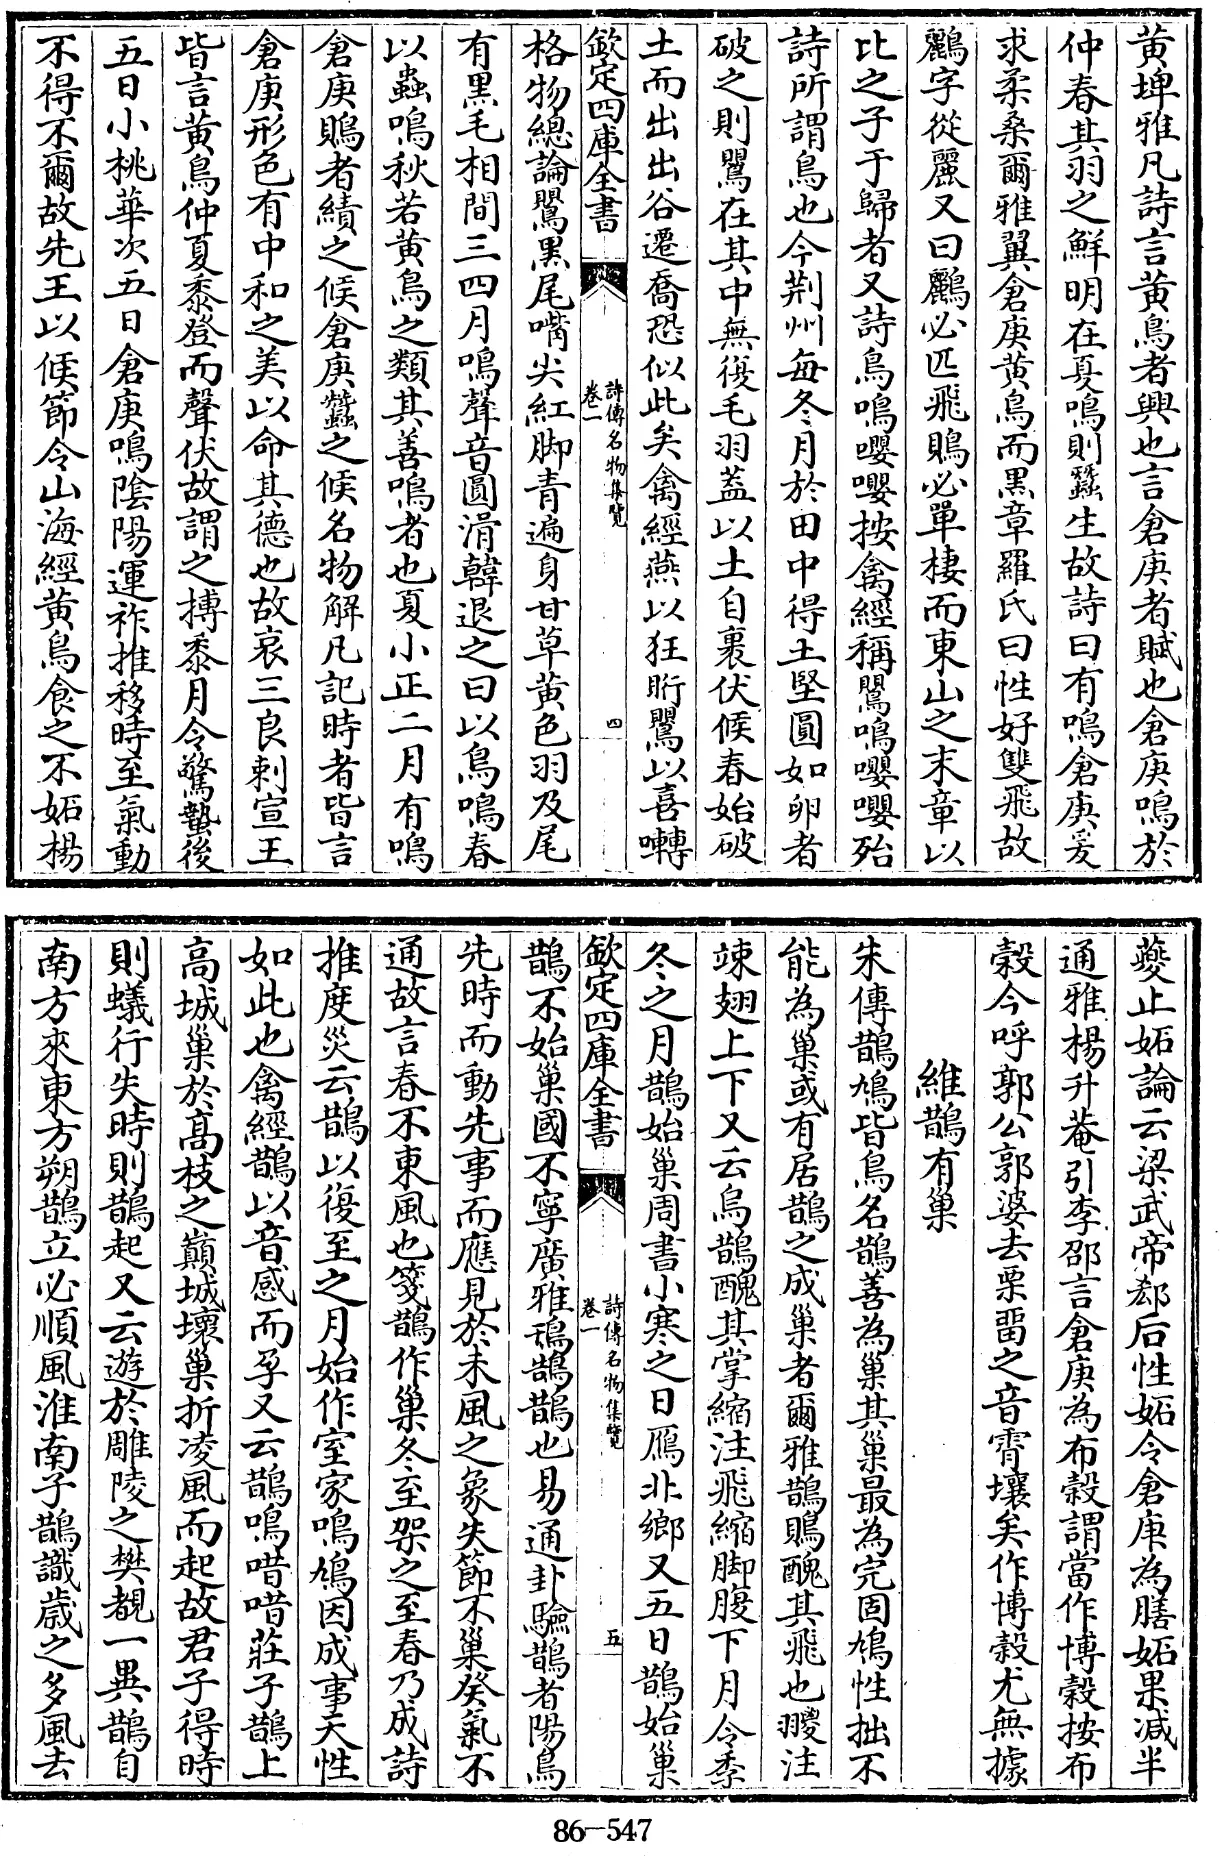 黄埤雅凡詩言黄鳥者興也言倉庚者賦也倉庚鳴於
仲春其羽之鮮明在夏鳴則蠶生故詩曰有鳴倉庚爰
求柔桑爾雅翼倉庚黄鳥而黑章羅氏曰性好雙飛故
鸝字從麗又曰鸝必匹飛鵙必單棲而東山之末章以
比之子于歸者又詩鳥鳴嚶嚶按禽經稱鸎鳴嚶嚶殆
詩所謂鳥也今荆州每冬月於田中得土堅圓如卵者
破之則鸎在其中無復毛羽蓋以土自裹伏候春始破
土而出出谷遷喬恐似此矣禽經燕以狂䀪鸎以喜囀
欽定四庫全書
詩傳名物集覽
卷一
四
格物總論鸎黒尾嘴尖紅脚青遍身甘草黄色羽及尾
有黒毛相間三四月鳴聲音圓滑韓退之曰以鳥鳴春
以蟲鳴秋若黄鳥之類其善鳴者也夏小正二月有鳴
倉庚鵙者績之候倉庚蠶之候名物解凡記時者皆言
倉庚形色有中和之美以命其德也故哀三良刺宣王
皆言黄鳥仲夏黍登而聲伏故謂之搏黍月令驚蟄後
五日小桃華次五日倉庚鳴陰陽運祚推移時至氣動
不得不爾故先王以候節令山海經黄鳥食之不妬楊
夔止妬論云梁武帝郄后性妬令倉庚為膳妬果減半
通雅楊升菴引李邵言倉庚為布榖謂當作博榖按布
榖今呼郭公郭婆去栗畱之音霄壤矣作博榖尤無據
維鵲有巢
朱傳鵲鳩皆鳥名鵲善為巢其巢最為完固鳩性拙不
能為巢或有居鵲之成巢者爾雅鵲鵙醜其飛也翪注
竦翅上下又云烏鵲醜其掌縮注飛縮脚腹下月令季
冬之月鵲始巢周書小寒之日鴈北鄉又五日鵲始巢
欽定四庫全書
詩傳名物集覽
卷一
五
鵲不始巢國不寧廣雅鳱鵲鵲也易通卦驗鵲者陽鳥
先時而動先事而應見於未風之象失節不巢癸氣不
通故言春不東風也箋鵲作巢冬至架之至春乃成詩
推度災云鵲以復至之月始作室家鳲鳩因成事天性
如此也禽經鵲以音感而孕又云鵲鳴唶唶莊子鵲上
高城巢於高枝之巔城壞巢折凌風而起故君子得時
則蟻行失時則鵲起又云遊於雕陵之樊覩一異鵲自
南方來東方朔鵲立必順風淮南子鵲識歲之多風去
86-547